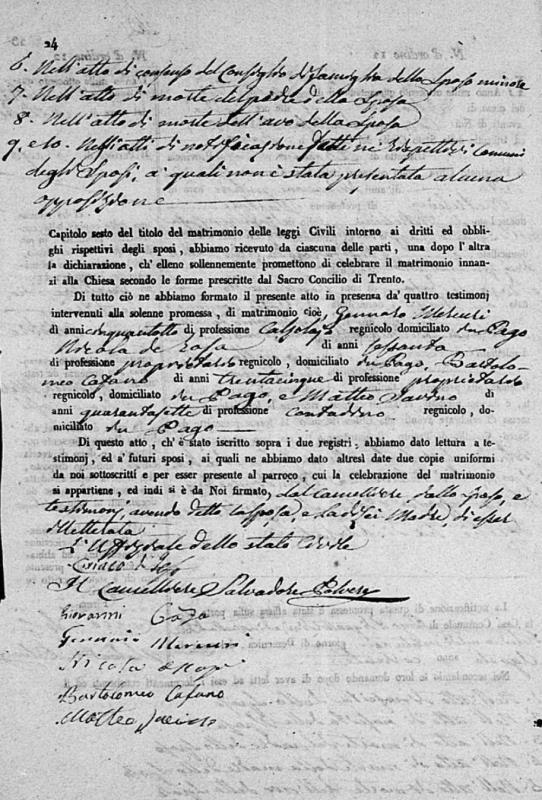 24
6. Nell'atto di consenso del Consiglio di famiglia della sposa minore
7. Nell'atto di morte del padre della sposa
8. Nell'atto di morte dell'avo della sposa
9, e 10. Negli atti di notificazione fatti ne' rispettivi Comuni
degli Sposi, a quali non è stata presentata alcuna
opposizione
Capitolo sesto del titolo del matrimonio delle leggi Civili intorno ai dritti ed obbli-
ghi rispettivi degli sposi, abbiamo ricevuto da ciascuna delle parti, una dopo l'altra
la dichiarazione, ch'elleno sollennemente promettono di celebrare il matrimonio innan-
zi alla Chiesa secondo le forme prescritte dal Sacro Concilio di Trento.
Di tutto ciò ne abbiamo formato il presente atto in presenza da' quattro testimonj
intervenuti alla solenne promessa, di matrimonio cioè, Gennaro Mercuri
di anni cinquantotto di professione Calzolajo regnicolo domiciliato in Pago
Nicola de di anni sessanta
di professione proprietario regnicolo, domiciliato in Pago, Bartolo-
meo Cafano di anni trentacinque di professione proprietario
regnicolo, domiciliato in Pago, e Matteo di
anni quarantasette di professione contadino regnicolo, do-
miciliato in Pago
Di questo atto, ch'è stato iscritto sopra i due registri, abbiamo dato lettura a te-
stimonj, ed a' futuri sposi, ai quali ne abbiamo dato altresì date due copie uniformi
da noi sottoscritti e per esser presente al parroco, cui la celebrazione del matrimonio
si appartiene, ed indi si è da Noi firmato, dal Cancelliere dallo sposo, e
testimonj, avendo detto la sposa, e la di lei Madre, di esser
illetterata
L'Uffiziale dello stato Civile
Il Cancelliere Salvadore
Giovanni
Gennaro Mercuri
Nicola
Bartolomeo Cafano
Matteo